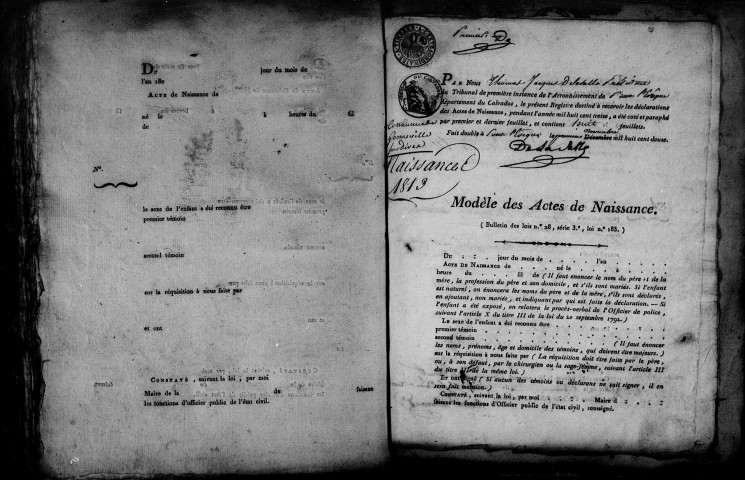 Du jour du mois de
l'an 180
Acte de Naissance de
né le à heures du fil
de
N°.
le sexe de l'enfant a été reconnu être
premier témoin
second témoin
sur la réquisition à nous faite par
et ont
Constaté, suivant la loi, par moi
Maire de la de faisant
les fonctions d'officier public de l'état civil.
Premier
Par Nous Thomas Jacques Président
du Tribunal de première instance de l'Arrondissement de
département du Calvados, le présent Registre destiné à recevoir les déclarations
des Actes de Naissance, pendant l'année mil huit cent treize, a été coté et paraphé
par premier et dernier feuillet, et contient huit feuillets.
Fait double à Décembre mil huit cent douze.
Commune de
Bonneville
Naissances
1813
Modèle des Actes de Naissance.
(Bulletin des lois n.° 28, série 3.e, loi n.° 183.)
Du . . . jour du mois de . . . l'an . .
Acte de Naissance de . . . né le . . . à . . .
heure du . . fil de (Il faut énoncer le nom du père et de la
mère, la profession du père et son domicile, et s'ils sont mariés. Si l'enfant
est naturel, on énoncera les noms du père et de la mère, s'ils sont déclarés,
en ajoutant, non mariés, et indiquant par qui est faite la déclaration. — Si
l'enfant a été exposé, on relatera le procès-verbal de l'Officier de police,
suivant l'article X du titre III de la loi du 20 septembre 1792.)
Le sexe de l'enfant a été reconnu être
premier témoin
second témoin (Il faut énoncer
les noms, prénoms, âge et domicile des témoins, qui doivent être majeurs.)
sur la réquisition à nous faite par (La réquisition doit être faite par le père,
ou, à son défaut, par le chirurgien ou la sage-femme, suivant l'article III
du titre III de la même loi.)
Et ont signé (Si aucun des témoins ou déclarans ne sait signer, il en
sera fait mention.)
Constaté, suivant la loi, par moi . . . Maire d . . .
faisant les fonctions d'Officier public de l'état civil, soussigné.